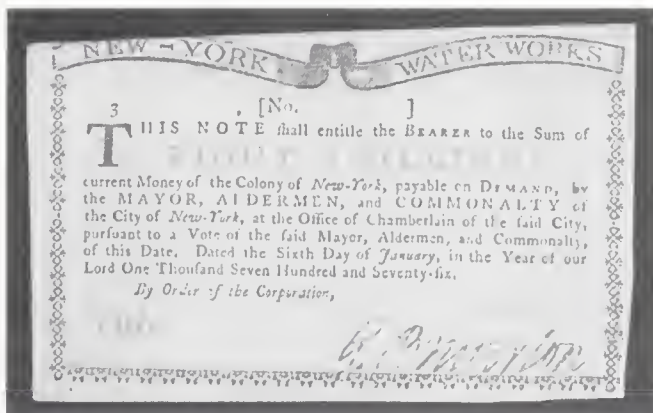 NEW-YORK WATER WORKS
3 , [No. ]
THIS NOTE ſhall entitle the BEARER to the Sum of
current Money of the Colony of New-York, payable on DEMAND, by
the MAYOR, ALDERMEN, and COMMONALTY of
the City of New-York, at the Office of Chamberlain of the ſaid City,
purſuant to a Vote of the ſaid Mayor, Aldermen, and Commonalty,
of this Date. Dated the Sixth Day of January, in the Year of our
Lord One Thouſand Seven Hundred and Seventy-ſix.
By Order of the Corporation,